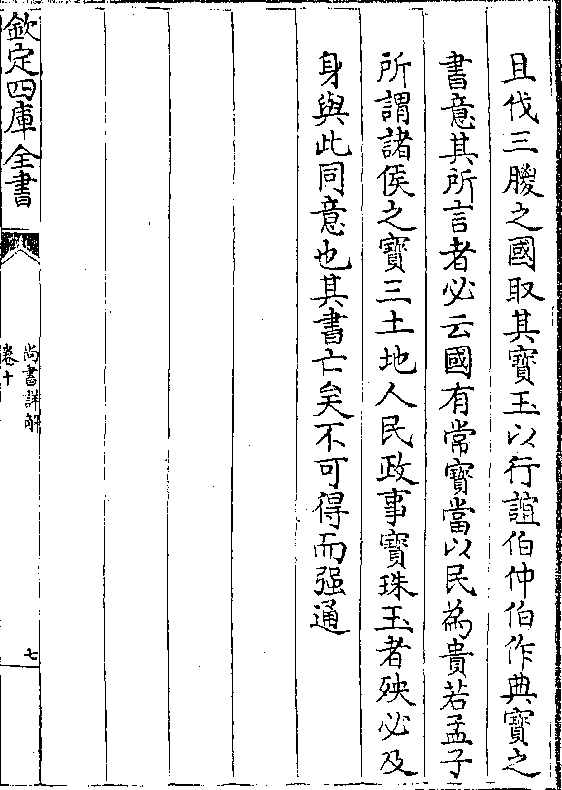 且伐三朡之國取其寳玉以行誼伯仲伯作典寳之
書意其所言者必云國有常寳當以民為貴若孟子
所謂諸侯之寳三土地人民政事寳珠玉者殃必及
身與此同意也其書亡矣不可得而强通
欽定四庫全書
尚書詳解
卷十
七